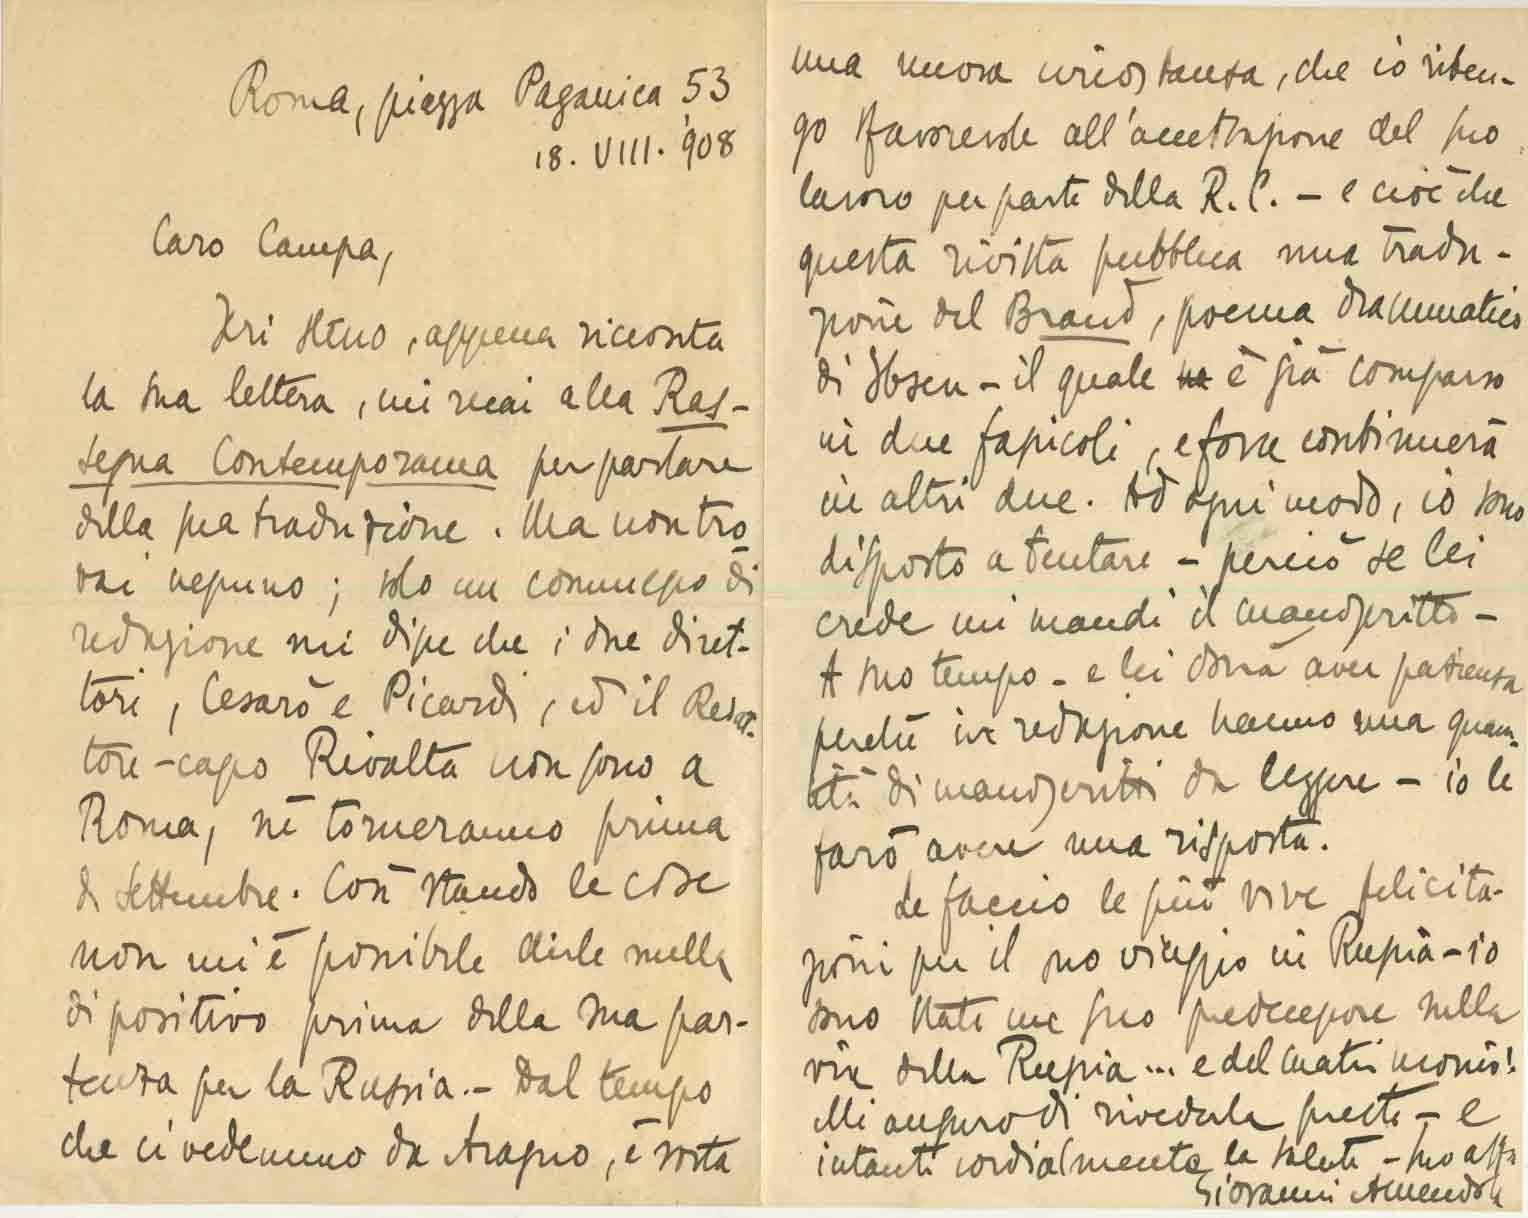 Roma, piazza Paganica 53
18. VIII. 908
Caro Campa,
Ieri stesso, appena ricevuta
la sua lettera, mi recai alla Ras-
segna Contemporanea per parlare
della sua traduzione. Ma non tro
vai nessuno; solo un commesso di
redazione mi disse che i due diret-
tori, Cesarò e Picardi, ed il Redat-
tore-capo Rivalta non sono a
Roma, nè torneranno prima
di Settembre. Così stando le cose
non mi è possibile dirle nulla
di positivo prima della sua par-
tenza per la Russia. - Dal tempo
che ci vedemmo da Aragno, è sorta
una nuova circostanza, che io riten-
go sfavorevole all'accettazione del suo
lavoro per parte della R.C. - e cioè che
questa rivista pubblica una tradu-
zione del Brand, poema drammatico
di Ibsen - il quale è già comparso
in due fascicoli, e forse continuerà
in altri due. Ad ogni modo, io sono
disposto a tentare - perciò se lei
crede mi mandi il manoscritto -
A suo tempo - e lei dovrà aver pazienza
perchè in redazione hanno una quan-
tità di manoscritti da leggere - io le
farò avere una risposta.
Le faccio le più vive felicita-
zioni per il suo viaggio in Russia - io
sono stato un suo predecessore nella
via della Russia... e del matrimonio!
Mi auguro di rivederla presto - e
intanto cordialmente la saluto - suo aff.
Giovanni Amendola